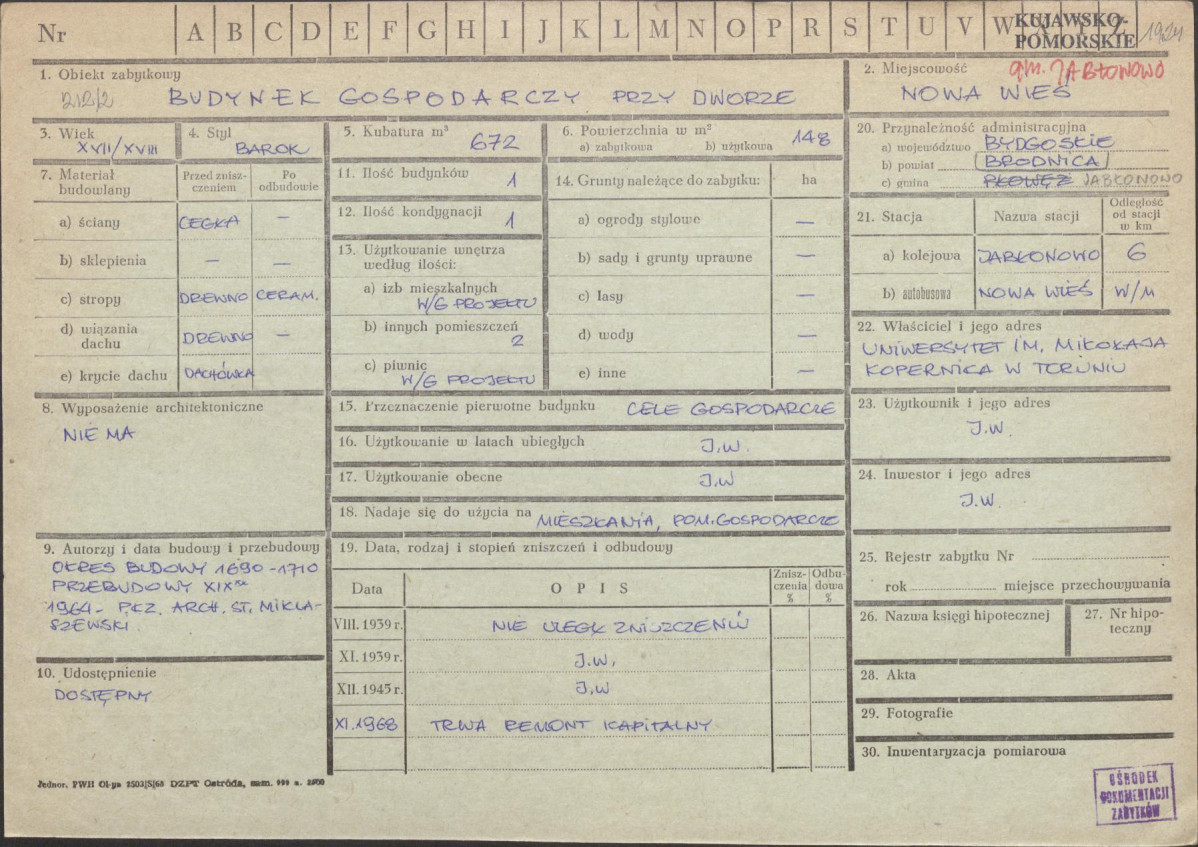 Nr A B C D E F G H I J K L M N O P R S T U V W
KUJAWSKO-
POMORSKIE
1. Obiekt zabytkowy
BUDYNEK GOSPODARCZY PRZY DWORZE
2. Miejscowość gm. JABŁONOWO
NOWA WIEŚ
3. Wiek
XVII/XVIII
4. Styl
BAROK
5. Kubatura m³
672
6. Powierzchnia w m²
a) zabytkowa b) użytkowa 148
7. Materiał budowlany
Przed zniszczeniem
Po odbudowie
a) ściany CEGŁA —
b) sklepienia — —
c) stropy DREWNO CERAM.
d) wiązania dachu DREWNO —
e) krycie dachu DACHÓWKA
8. Wyposażenie architektoniczne
NIE MA
9. Autorzy i data budowy i przebudowy
OKRES BUDOWY 1690-1710
PRZEBUDOWY XIX
1964- PKZ. ARCH. ST. MIKŁA-
SZEWSKI
10. Udostępnienie
DOSTĘPNY
11. Ilość budynków 1
12. Ilość kondygnacji 1
13. Użytkowanie wnętrza
według ilości:
a) izb mieszkalnych
W/G PROJEKTU
b) innych pomieszczeń
2
c) piwnic
W/G PROJEKTU
14. Grunty należące do zabytku: ha
a) ogrody stylowe —
b) sady i grunty uprawne —
c) lasy —
d) wody —
e) inne —
15. Przeznaczenie pierwotne budynku CELE GOSPODARCZE
16. Użytkowanie w latach ubiegłych J.W.
17. Użytkowanie obecne J.W
18. Nadaje się do użycia na MIESZKANIA, POM. GOSPODARCZE
19. Data, rodzaj i stopień zniszczeń i odbudowy
Data OPIS Zniszczenia % Odbudowa %
VIII. 1939 r. NIE ULEGŁ ZNISZCZENIU
XI. 1939 r. J.W.
XII. 1945 r. J.W
XI.1968 TRWA REMONT KAPITALNY
20. Przynależność administracyjna
a) województwo BYDGOSKIE
b) powiat BRODNICA
c) gmina PŁOWĘŻ JABŁONOWO
21. Stacja Nazwa stacji Odległość od stacji w km
a) kolejowa JABŁONOWO 6
b) autobusowa NOWA WIEŚ W/M
22. Właściciel i jego adres
UNIWERSYTET IM. MIKOŁAJA
KOPERNICA W TORUNIU
23. Użytkownik i jego adres
J.W.
24. Inwestor i jego adres
J.W.
25. Rejestr zabytku Nr
rok miejsce przechowywania
26. Nazwa księgi hipotecznej
27. Nr hipoteczny
28. Akta
29. Fotografie
30. Inwentaryzacja pomiarowa
OŚRODEK
DOKUMENTACJI
ZABYTKÓW